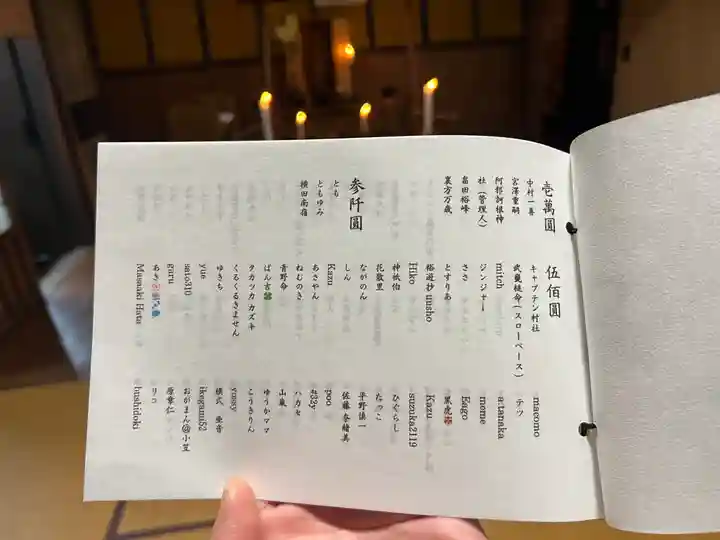 壱萬圓
中村一善
宮澤重嗣
阿部訶根神
社（管理人）
畠田裕峰
裏方万歳
参阡圓
とも
ともゆみ
横田南嶺
伍佰圓
キャプテン村社
武甕槌命(スローペース)
mitch
ジンジャー
ささ
とすりあ
裕遊抄 unsho
Hiko
神秋伯
花散里
ながのん
しん
Kazu
あさやん
ねむのき
青野命
ぱん吉🍀
タカツカカズキ
くるくるきません
ゆきち
yue
sato310
garu
あき
Masaaki Hata
macomo
テツ
a-tanaka
meme
Eago
黒虎
Kazu
suzuka2119
ひぐらし
なつこ
平野慎一
佐藤奈緒美
poo
#32y
ハカセ
ゆうかママ
こうきりん
yossy
横式 亜音
ikegami52
おがまん@小笠
原章仁
リコ